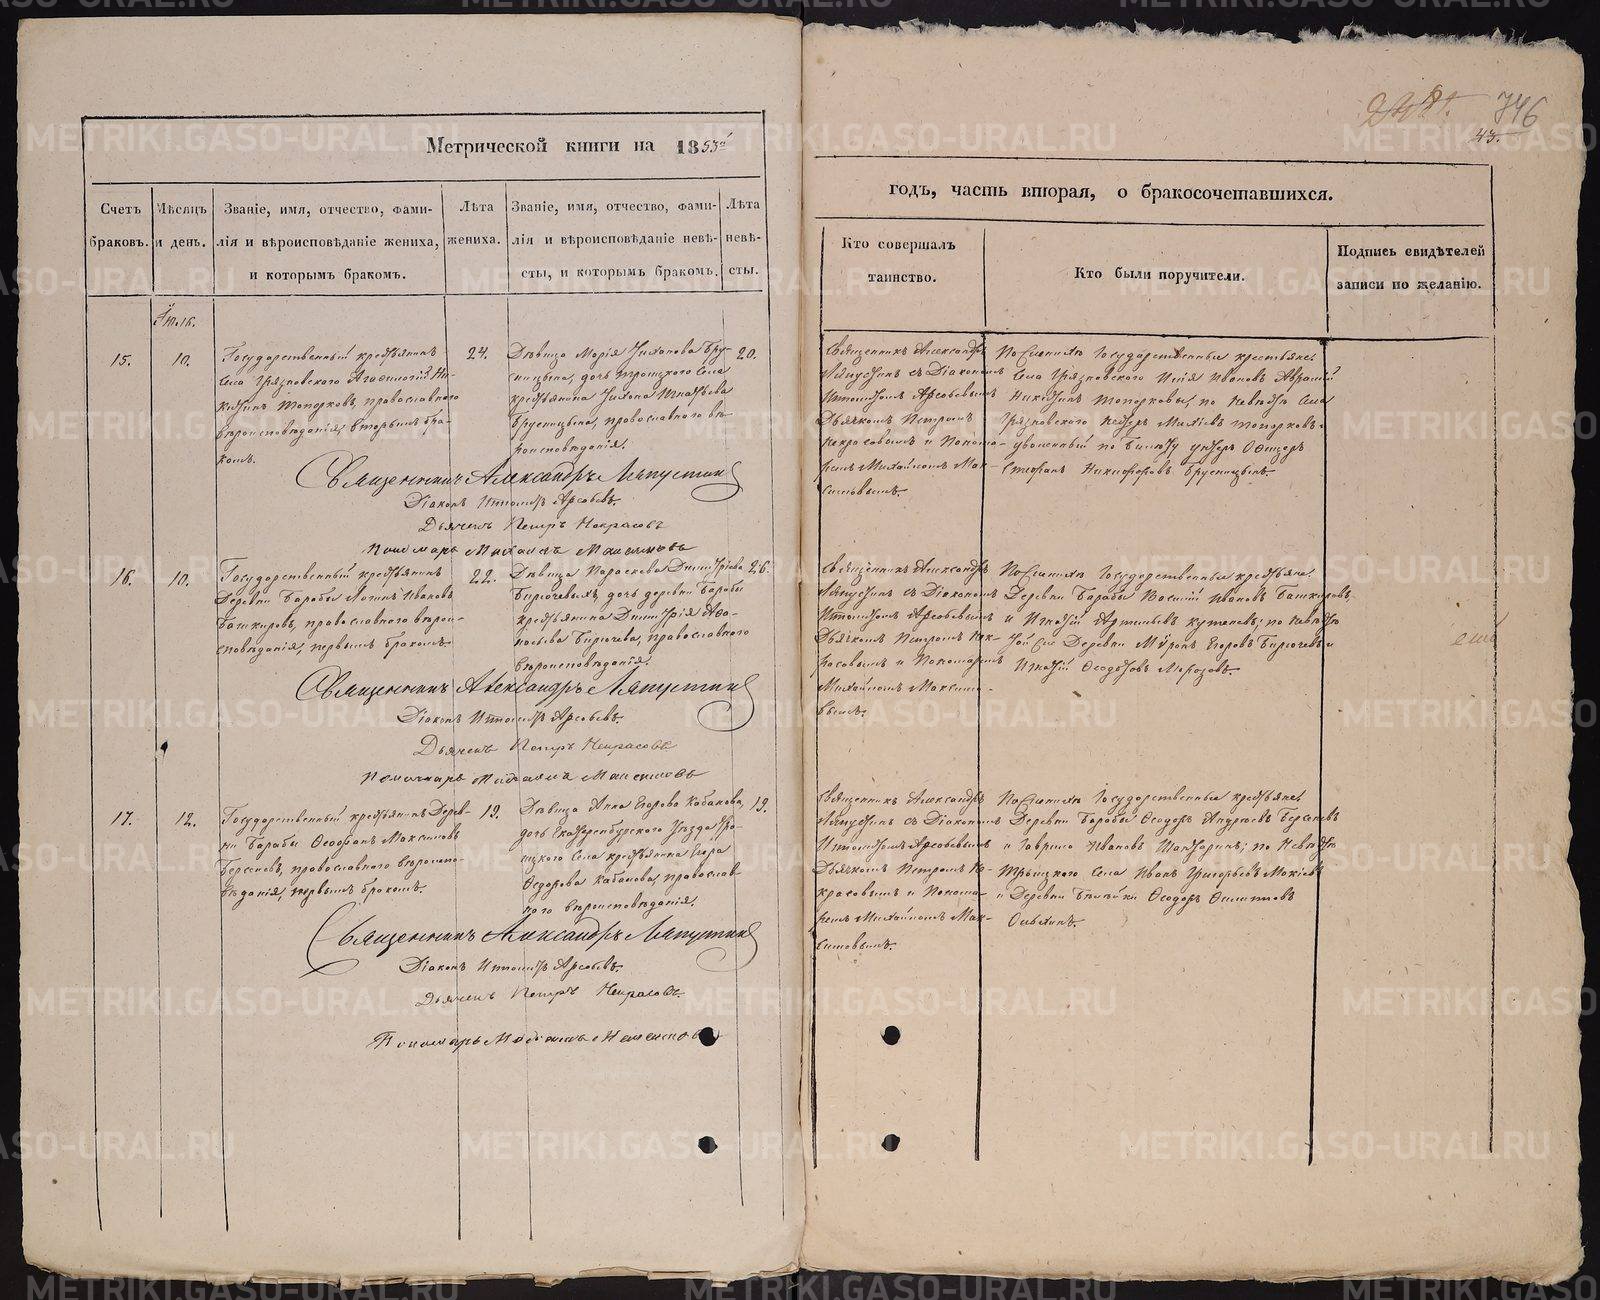 746
43.
Метрической книги на 1853й
годъ, часть вторая, о бракосочетавшихся.
Счетъ браковъ.
Мѣсяцъ и день.
Званіе, имя, отчество, фами-
лія и вѣроисповѣданіе жениха,
и которымъ бракомъ.
Лѣта
жениха.
Званіе, имя, отчество, фами-
лія и вѣроисповѣданіе невѣ-
сты, и которымъ бракомъ.
Лѣта
невѣ-
сты.
Кто совершалъ
таинство.
Кто были поручители.
Подпись свидѣтелей
записи по желанію.
15.
10.
Государственный крестьянинъ
Села Грязновского
Топорковъ, православного
вѣроисповѣданія, вторымъ бра-
комъ.
24.
Дѣвица Марія Тихонова Бру-
сницына, дочь Троицкого Села
крестьянина Тихона Игнатьева
Брусницына, православного вѣ-
роисповѣданія.
20.
Священникъ Александръ
Ляпустинъ съ Діакономъ
Ипполитомъ
Дьячкомъ Петромъ
Некрасовымъ и Понома-
ремъ Михайломъ Мак-
симовымъ.
По женихѣ Государственные крестьяне
Села Грязновского Илія Ивановъ
Никитинъ Топорковы, по невѣстѣ Села
Грязновского Топорковъ и
уволенный по билету унтеръ Офицеръ
Стефанъ Никифоровъ Брусницынъ.
Священникъ Александръ Ляпустинъ
Діаконъ Ипполитъ
Дьячекъ Петръ Некрасовъ
Пономарь Михаилъ Максимовъ
16.
10.
Государственный крестьянинъ
Деревни Барабы Логинъ Ивановъ
Башкировъ, православного вѣрои-
сповѣданія, первымъ бракомъ.
22.
Дѣвица Параскева Димитріева
Бирючевыхъ, дочь деревни Барабы
крестьянина Димитрія Аѳа-
насьева Бирючева, православного
вѣроисповѣданія.
26.
Священникъ Александръ
Ляпустинъ съ Діакономъ
Ипполитомъ
Дьячкомъ Петромъ Нек-
расовымъ и Пономаремъ
Михайломъ Максимо-
вымъ.
По женихѣ Государственные крестьяне
Деревни Барабы Василій Ивановъ Башкировъ,
и Игнатій Артемьевъ по невѣстѣ
той же Деревни Миронъ Егоровъ Бирючевъ и
Игнатій Ѳедоровъ Морозовъ.
Священникъ Александръ Ляпустинъ
Діаконъ Ипполитъ
Дьячекъ Петръ Некрасовъ
Пономарь Михаилъ Максимовъ
17.
12.
Государственный крестьянинъ Дерев-
ни Барабы Ѳеофанъ Максимовъ
Берсеневъ, православного вѣроиспо-
вѣданія, первымъ бракомъ.
19.
Дѣвица Анна Егорова Кабакова,
дочь Екатеринбургского Уѣзда Тро-
ицкого Села крестьянина Егора
Ѳедорова Кабакова, православ-
ного вѣроисповѣданія.
19.
Священникъ Александръ
Ляпустинъ съ Діакономъ
Ипполитомъ
Дьячкомъ Петромъ Не-
красовымъ и Понома-
ремъ Михайломъ Мак-
симовымъ.
По женихѣ Государственные крестьяне
Деревни Барабы Ѳеодоръ Берсеневъ
и Гаврило Ивановъ по невѣстѣ
Троицкого Села Иванъ Григорьевъ
и Деревни Ѳеодоръ Филипповъ
Священникъ Александръ Ляпустинъ
Діаконъ Ипполитъ
Дьячекъ Петръ Некрасовъ.
Пономарь Михаилъ Максимовъ
METRIKI.GASO-URAL.RU